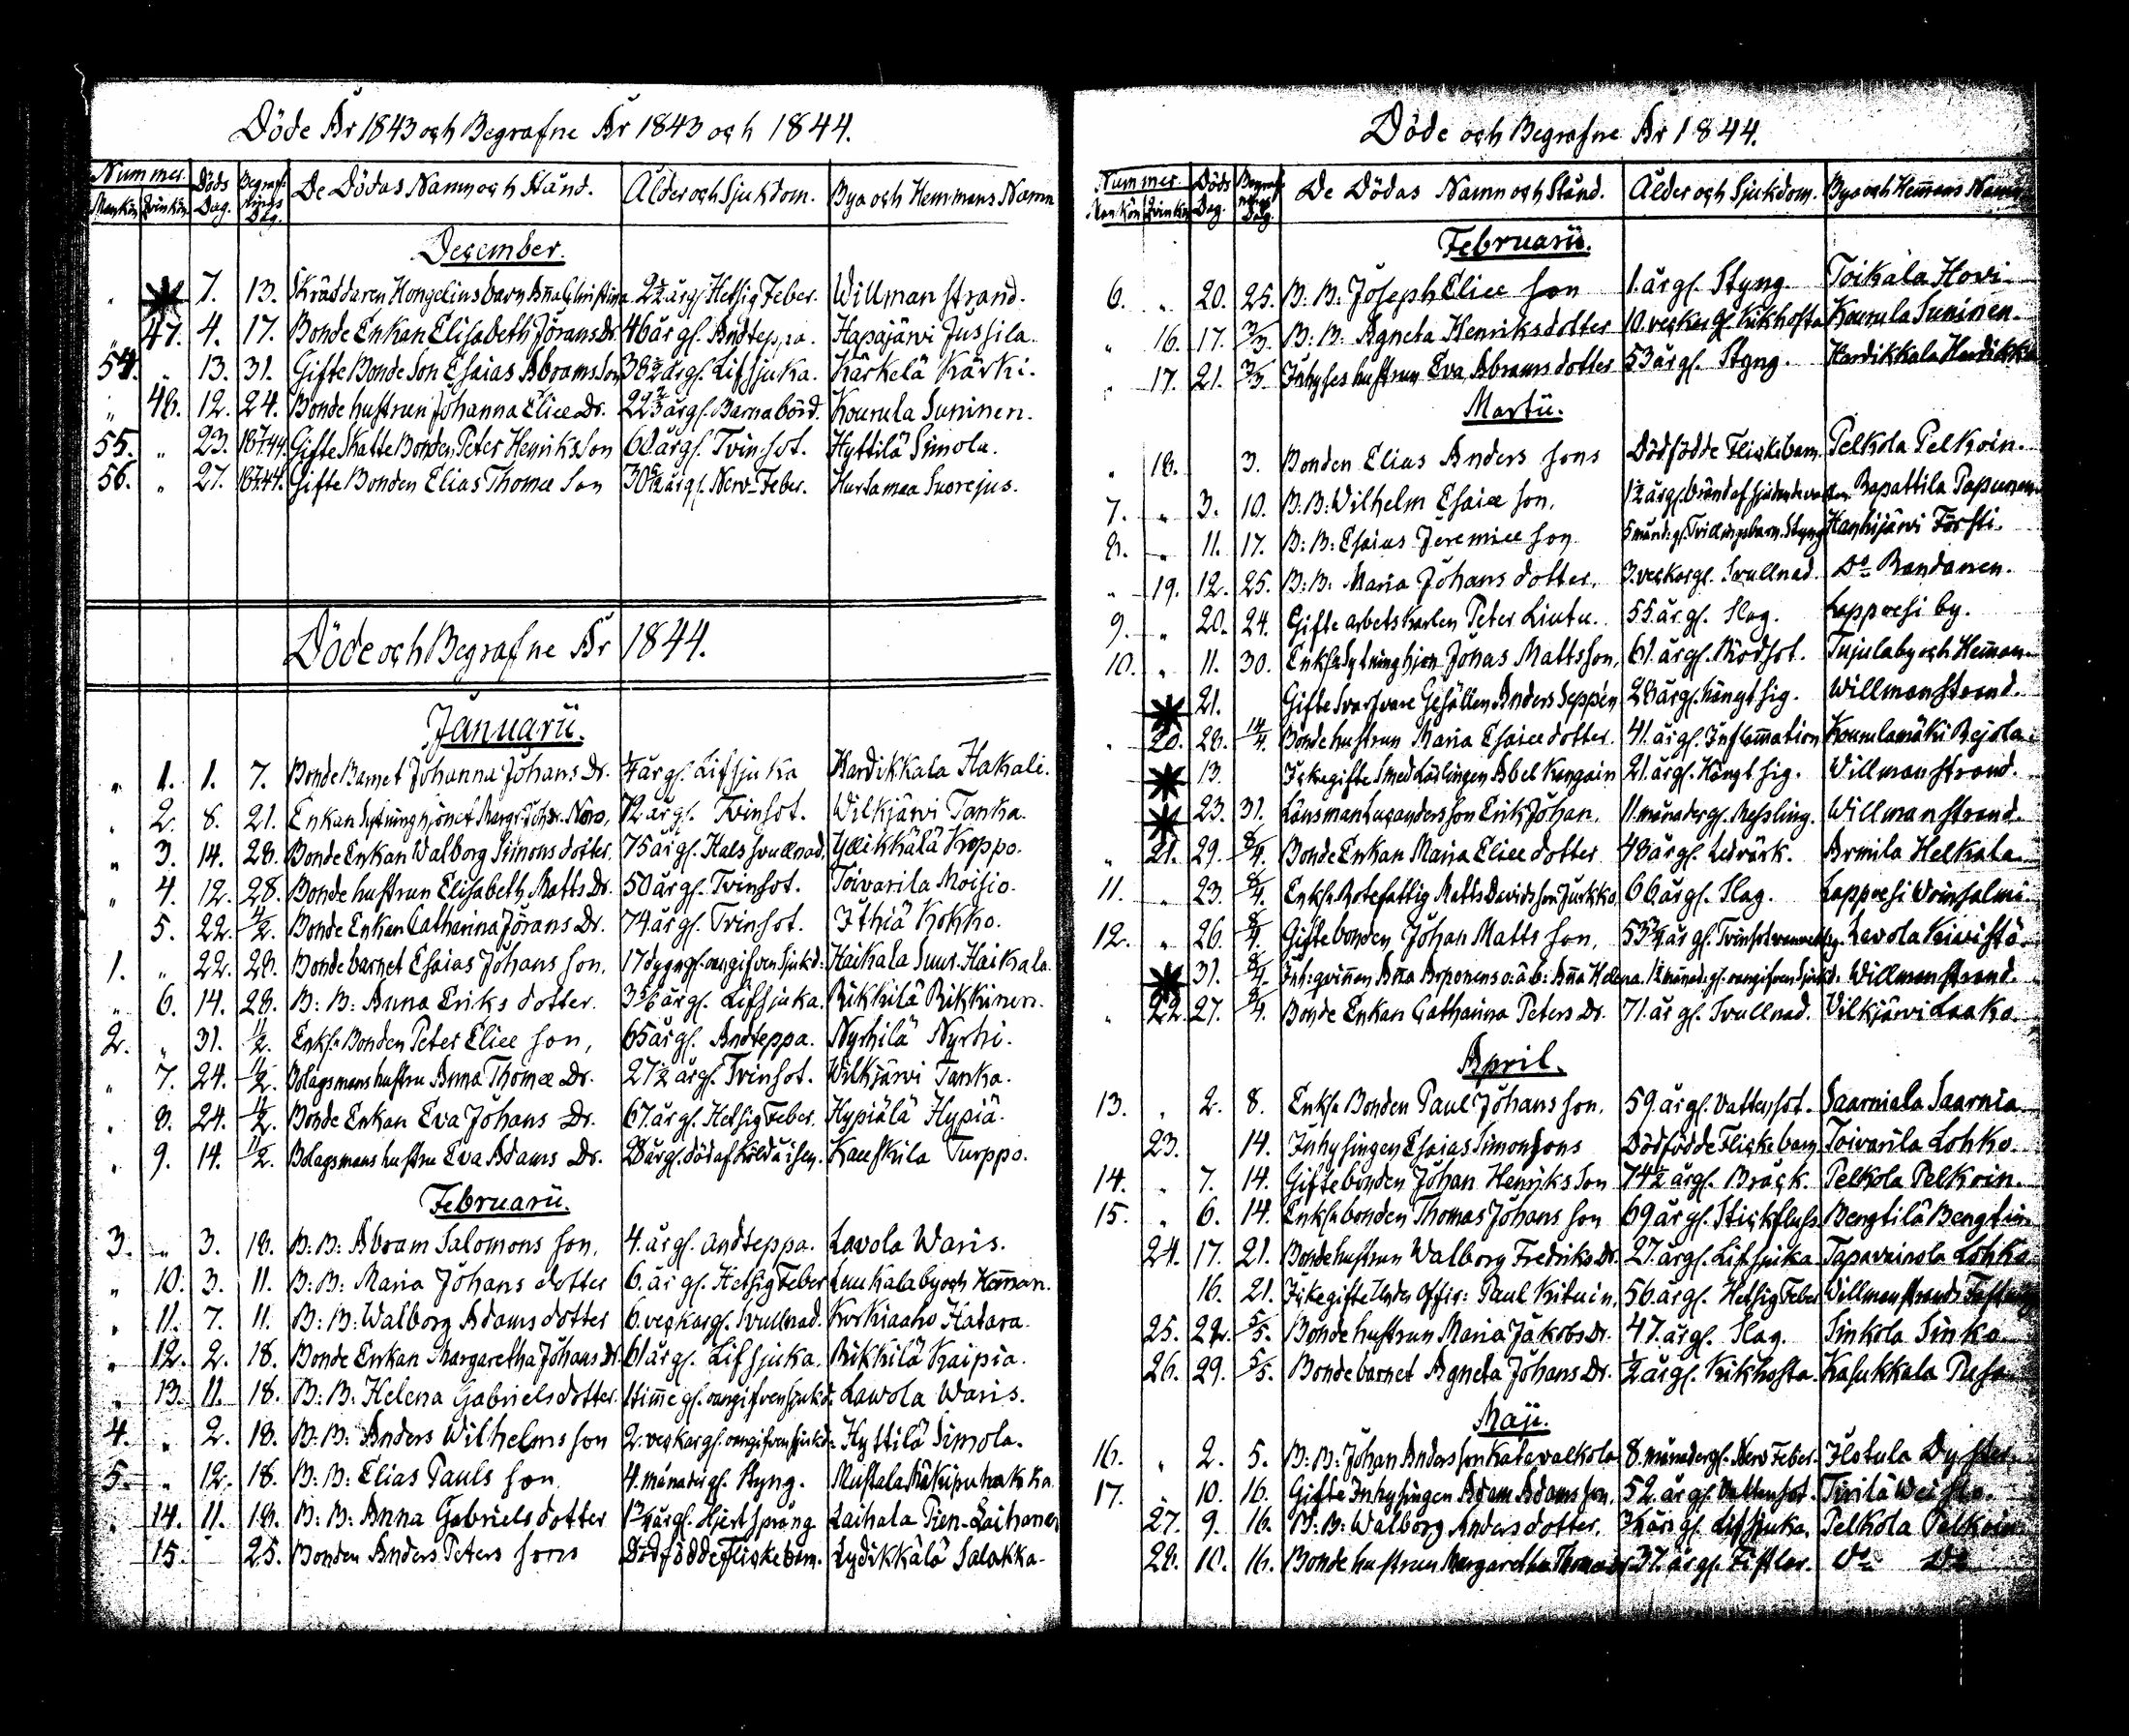 Döde År 1843 och Begrafne År 1843 och 1844.
Nummer. Döds Dag. Begrafnings Dag. De Dödas Namn och Stånd. Ålder och Sjukdom. Bya och Hemmans Namn
Mankön Qvinkön
December.
" 7. 13. Skräddaren Hongelius barn Aña Christina 2½ årgl. Hetsig Feber. Willmanstrand.
" 47. 4. 17. Bonde Enkan Elisabeth Jörans Dr. 46 år gl. Andteppa. Hapajärvi Jussila.
54. " 13. 31. Gifte Bonde Son Esaias Abrams Son 38½ årgl. Lifsjuka. Kärkelä Kärki.
" 48. 12. 24. Bonde hustrun Johanna Eliæ Dr. 22⅔ årgl. Barnabörd. Kourula Suninen.
55. " 23. 18 7/1 44. Gifte Skatte Bonden Peter Henriksson 60 årgl. Tvinsot. Hyttilä Simola.
56. " 27. 18 7/1 44. Gifte Bonden Elias Thomæ Son 30 årgl. Nerv-Feber. Hurtamaa Suorejus.
Döde och Begrafne År 1844.
Januarii.
" 1. 1. 7. Bonde Barnet Johanna Johans Dr. ¼ årgl. Lifsjuka Hardikkala Hakali.
" 2. 8. 21. Enkan Sytninghjonet Margr: Dr. Noro, 72 årgl. Tvinsot. Wilkjärvi Tanka.
" 3. 14. 28. Bonde Enkan Walborg Simons dotter. 75 årgl. Halssvullnad. Ylikkälä Koppo.
" 4. 12. 28. Bonde hustrun Elisabeth Matts Dr. 50 årgl. Tvinsot. Toivarila Moisio.
5. 22. 4/2. Bonde Enkan Catharina Jörans Dr. 74 årgl. Tvinsot. Ithiä Kokko.
1. " 22. 28. Bonde barnet Esaias Johans son. 17 dygngl. oangifven Sjukd: Haikala Suur-Haikala.
" 6. 14. 28. B: B: Anna Eriks dotter. 3 5/6 årgl. Lifsjuka. Rikkilä Rikkinen.
2. " 31. 11/2. Enkl. Bonden Peter Eliæ son, 65 årgl. Andteppa. Nyrhilä Nyrhi.
" 7. 24. 11/2. Bolagsmans hustru Anna Thomæ Dr. 27½ årgl. Tvinsot. Wilkjärvi Tanka.
" 8. 24. 11/2. Bonde Enkan Eva Johans Dr. 67. årgl. Hetsig Feber. Hypiälä Hypiä.
" 9. 14. 11/2. Bolagsmans hustru Eva Adams Dr. 28 årgl. död af köld å isen. Kauskila Turppo.
Februarii.
3. " 3. 18. B: B: Abram Salomons son. 4. årgl. andteppa. Lavola Waris.
" 10. 3. 11. B: B: Maria Johans dotter 6. år gl. Hetsig Feber Luukala by och Hem̃an.
" 11. 7. 11. B: B: Walborg Adams dotter 6. veckorgl. Svullnad. Korkiaaho Hatara.
" 12. 2. 18. Bonde Enkan Margaretha Johans Dr. 61 årgl. Lifsjuka. Rikkilä Kaipia.
" 13. 11. 18. B: B: Helena Gabriels dotter. 1 tim̃e gl. oangifven sjukd: Lawola Waris.
4. " 2. 18. B: B: Anders Wilhelms son 2. veckorgl. oangifven sjukd: Hyttilä Simola.
5. " 12. 18. B: B: Elias Pauls son. 4. månadergl. Styng. Mustala
" 14. 11. 18. B: B: Anna Gabriels dotter 1¾ årgl. Hjertsprång. Laihala Pien-Laihanen
15. 25. Bonden Anders Peters sons Dödfödde Flickebarn. Lydikkälä Salakka.
Döde och Begrafne År 1844.
Nummer. Döds Dag. Begrafnings Dag. De Dödas Namn och Stånd. Ålder och Sjukdom. Bya och Hem̃ans Namn
Mankön Qvinkön
Februarii.
6. " 20. 25. B: B: Joseph Eliæ son 1. årgl. Styng. Toikala Hovi
" 16. 17. 3/3. B: B: Agneta Henriksdotter 10. veckor gl. Kikhosta Kourula Suninen.
" 17. 21. 3/3. Inhyses hustrun Eva Abrams dotter 53 årgl. Styng. Hardikkala Hardikka
Martii.
" 18. 3. Bonden Elias Anders sons Dödfödde Flickebarn. Pelkola Pelkoin.
7. " 3. 10. B: B: Wilhelm Esaiæ son. 1½ årgl. bränd af sjudande vatten Rapattila Tapanen.
8. " 11. 17. B: B: Esaias Jeremiæ son 5 månd: gl. Tvillingebarn. Styng Hanhijärvi Försti.
" 19. 12. 25. B: B: Maria Johans dotter. 3. veckorgl. Svullnad. Do Randanen.
9. " 20. 24. Gifte arbetskarlen Peter Liutu. 55 år gl. Slag. Lappvesi by.
10. " 11. 30. Enkl. Sytninghjon Johas Mattsson, 61. årgl. Rödsot. Tujula by och Hem̃an.
21. Gifte Svarfvare Gesällen Anders Seppén 28 årgl. hängt sig. Willmanstrand.
" 20. 28. 14/4. Bonde hustrun Maria Esaiæ dotter. 41. årgl. Inflam̃ation Kourulamäki Rejola.
13. Ickegifte Smed Lärlingen Abel Kangain 21. årgl. Hängt sig. Villmanstrand.
23. 31. Länsman Lucanders son Erik Johan. 11. månadergl. Messling. Willmanstrand.
" 21. 29. 8/4. Bonde Enkan Maria Eliæ dotter 48 årgl. Ledvärk. Armila Helkala.
11. " 23. 8/4. Enkl. Rotefattig Matts Davidsson Jurkko. 66. årgl. Slag. Lappvesi Voinsalmi
12. " 26. 8/4. Gifte bonden Johan Matts son, 53¾ år gl. Tvinsot Lavola Kivistö.
31. 8/4. Inh: qvin̄an Aña Arponens o: ä: b: Aña Helena. 1½ månad: gl. oangifven Sjukd. Willmanstrand.
" 22. 27. 8/4. Bonde Enkan Catharina Peters Dr. 71. år gl. Svullnad. Vilkjärvi Laako.
April.
13. " 2. 8. Enkl. Bonden Paul Johans son. 59. årgl. Vattensot. Saarniala Saarnia
23. 14. Inhysingen Esaias Simonsons Dödfödde Flickebarn Toivarila Lohko.
14. " 7. 14. Gifte bonden Johan Henriks Son 74½ årgl. Bråck. Pelkola Pelkoin.
15. " 6. 14. Enkl. bonden Thomas Johans son 69 år gl. Stickfluss Bengtilä Bengtin
24. 17. 21. Bonde hustrun Walborg Fredriks Dr. 27. årgl. Lifsjuka Tapavainola Lohko
16. 21. Ickegifte Under Offic: Paul Kituin. 56. årgl. Hetsig Feber Willmanstrands Fästning
25. 22. 5/5. Bonde hustrun Maria Jakobs Dr. 47. årgl. Slag. Sinkola Sinko.
26. 29. 5/5. Bonde barnet Agneta Johans Dr. ½ årgl. Kikhosta. Kasukkala
Maji.
16. " 2. 5. B: B: Johan Andersson Katavalkola 8. månadergl. Nerv Feber. Ilotula
17. " 10. 16. Gifte Inhysingen Adam Adams son. 52. år gl. Vattensot. Tirilä
27. 9. 16. B: B: Walborg Anders dotter. ¾ år gl. Lifsjuka. Pelkola Pelkoin
28. 10. 16. Bonde hustrun Margaretha Thomæ Dr 37. årgl. Fistlar. Do Do